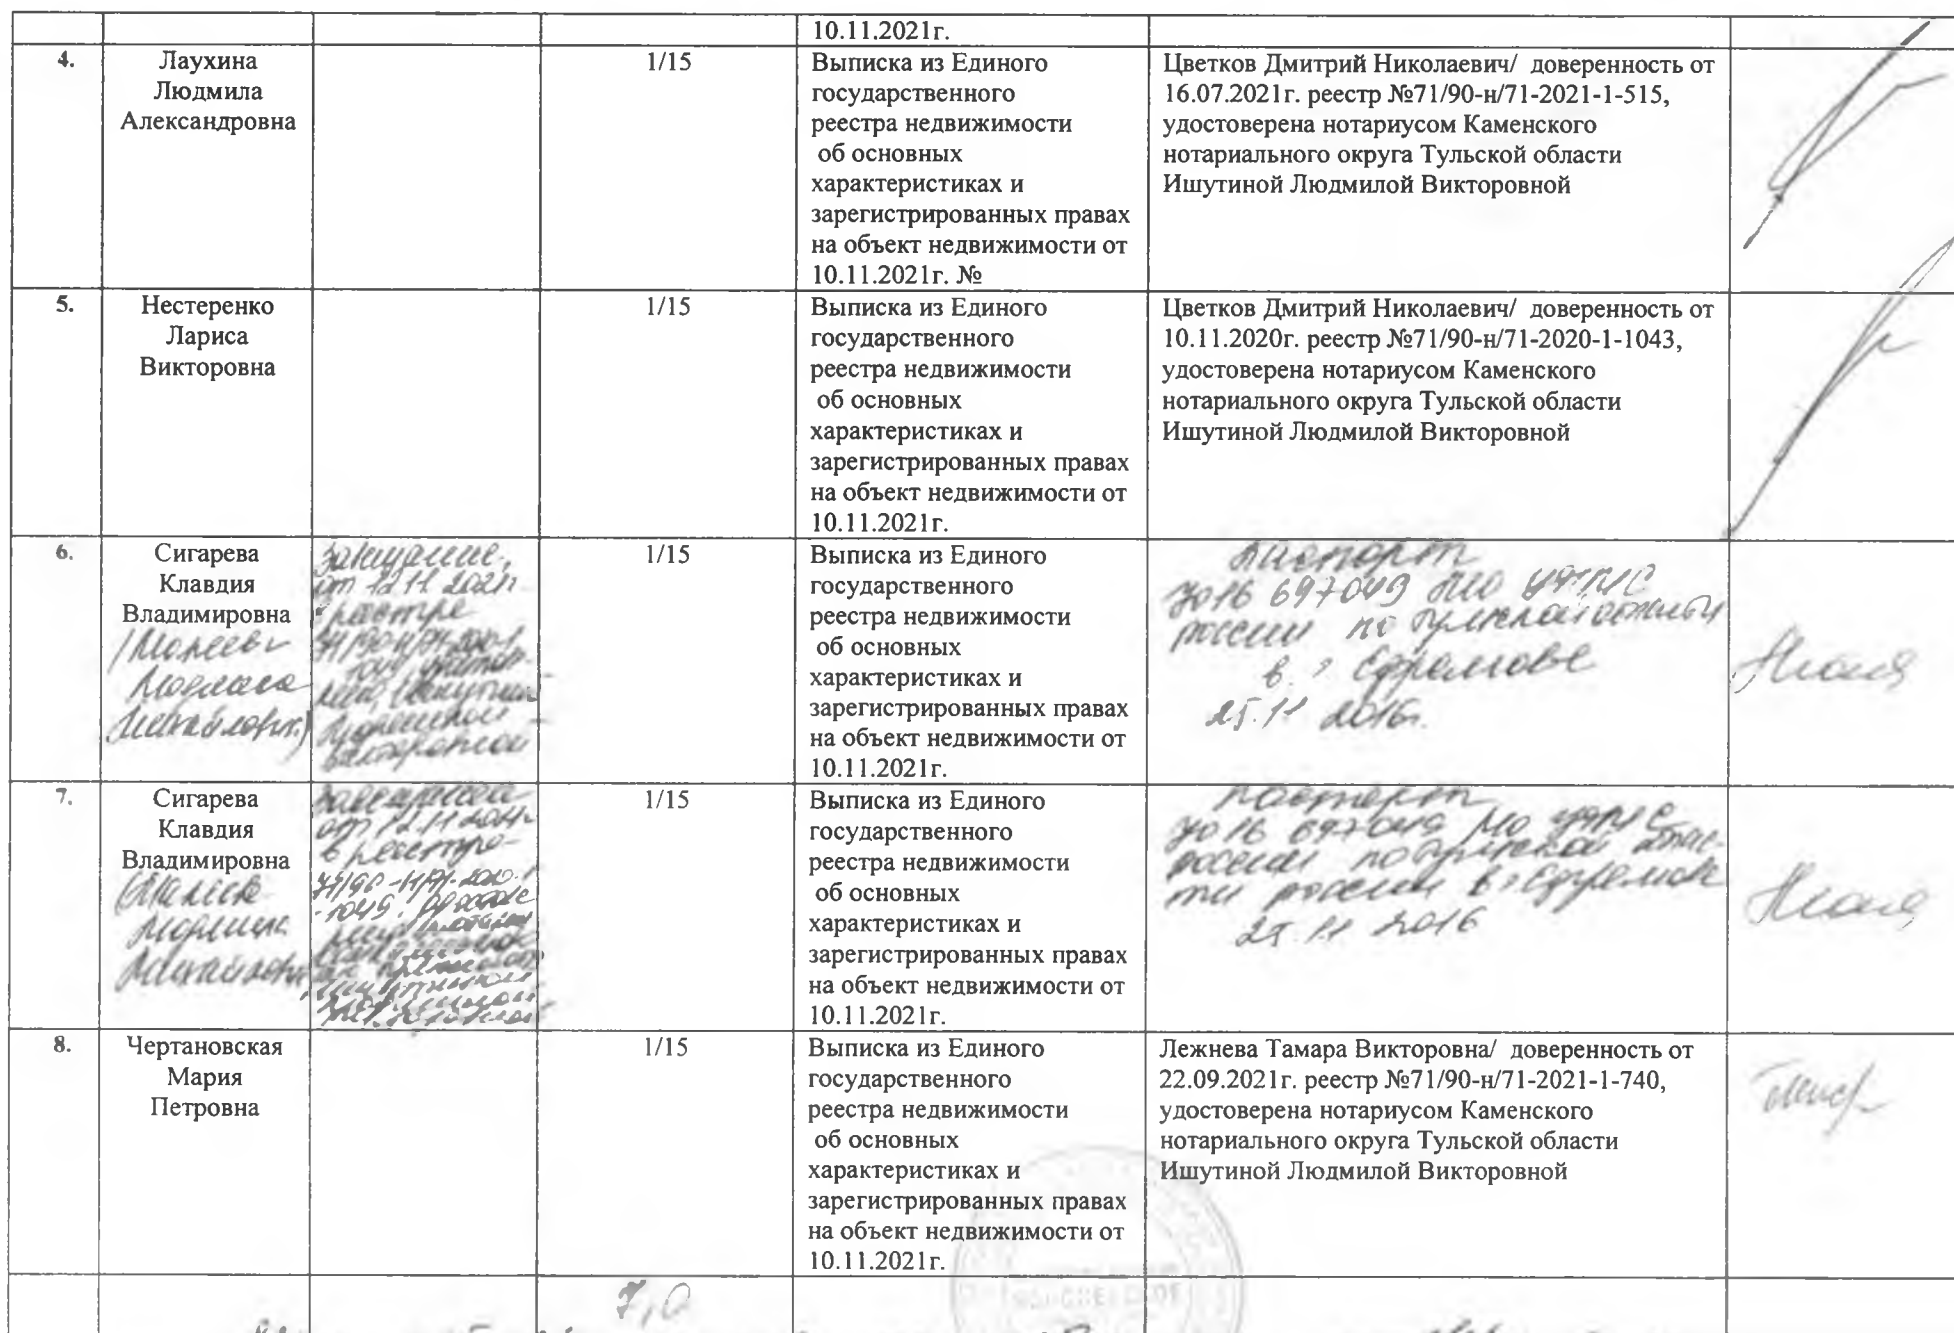 10.11.2021г.
4.
Лаухина
Людмила
Александровна
1/15
Выписка из Единого
государственного
реестра недвижимости
об основных
характеристиках и
зарегистрированных правах
на объект недвижимости от
10.11.2021г. №
Цветков Дмитрий Николаевич/ доверенность от
16.07.2021г. реестр №71/90-н/71-2021-1-515,
удостоверена нотариусом Каменского
нотариального округа Тульской области
Ишутиной Людмилой Викторовной
5.
Нестеренко
Лариса
Викторовна
1/15
Выписка из Единого
государственного
реестра недвижимости
об основных
характеристиках и
зарегистрированных правах
на объект недвижимости от
10.11.2021г.
Цветков Дмитрий Николаевич/ доверенность от
10.11.2020г. реестр №71/90-н/71-2020-1-1043,
удостоверена нотариусом Каменского
нотариального округа Тульской области
Ишутиной Людмилой Викторовной
6.
Сигарева
Клавдия
Владимировна
от 12.11.2021г.
1/15
Выписка из Единого
государственного
реестра недвижимости
об основных
характеристиках и
зарегистрированных правах
на объект недвижимости от
10.11.2021г.
Паспорт
7016 697049 МО УФМС
россии по тульской области
в г Ефремове
25.11 2016г.
7.
Сигарева
Клавдия
Владимировна
от 12.11.2021г.
в реестре
1/15
Выписка из Единого
государственного
реестра недвижимости
об основных
характеристиках и
зарегистрированных правах
на объект недвижимости от
10.11.2021г.
паспорт
7016 697049 МО УФМС
россии по тульской облас-
ти россии в г Ефремове
25.11 2016
8.
Чертановская
Мария
Петровна
1/15
Выписка из Единого
государственного
реестра недвижимости
об основных
характеристиках и
зарегистрированных правах
на объект недвижимости от
10.11.2021г.
Лежнева Тамара Викторовна/ доверенность от
22.09.2021г. реестр №71/90-н/71-2021-1-740,
удостоверена нотариусом Каменского
нотариального округа Тульской области
Ишутиной Людмилой Викторовной
7,0